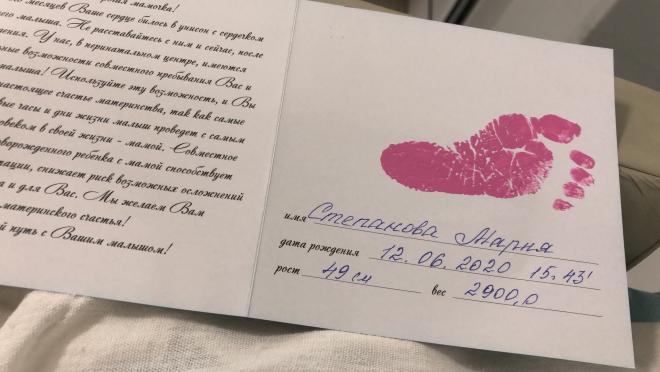 мамочка!
месяцев Ваше сердце билось в унисон с сердечком
его малыша. Не расставайтесь с ним и сейчас, после
У нас, в перинатальном центре, имеются
возможности совместного пребывания Вас и
малыша! Используйте эту возможность, и Вы
настоящее счастье материнства, так как самые
часы и дни жизни малыш проведет с самым
человеком в своей жизни - мамой. Совместное
новорожденного ребенка с мамой способствует
снижает риск возможных осложнений
и для Вас. Мы желаем Вам
материнского счастья!
путь с Вашим малышом!
имя Степанова Мария
дата рождения 12.06.2020 15.43'
рост 49 см вес 2900,0